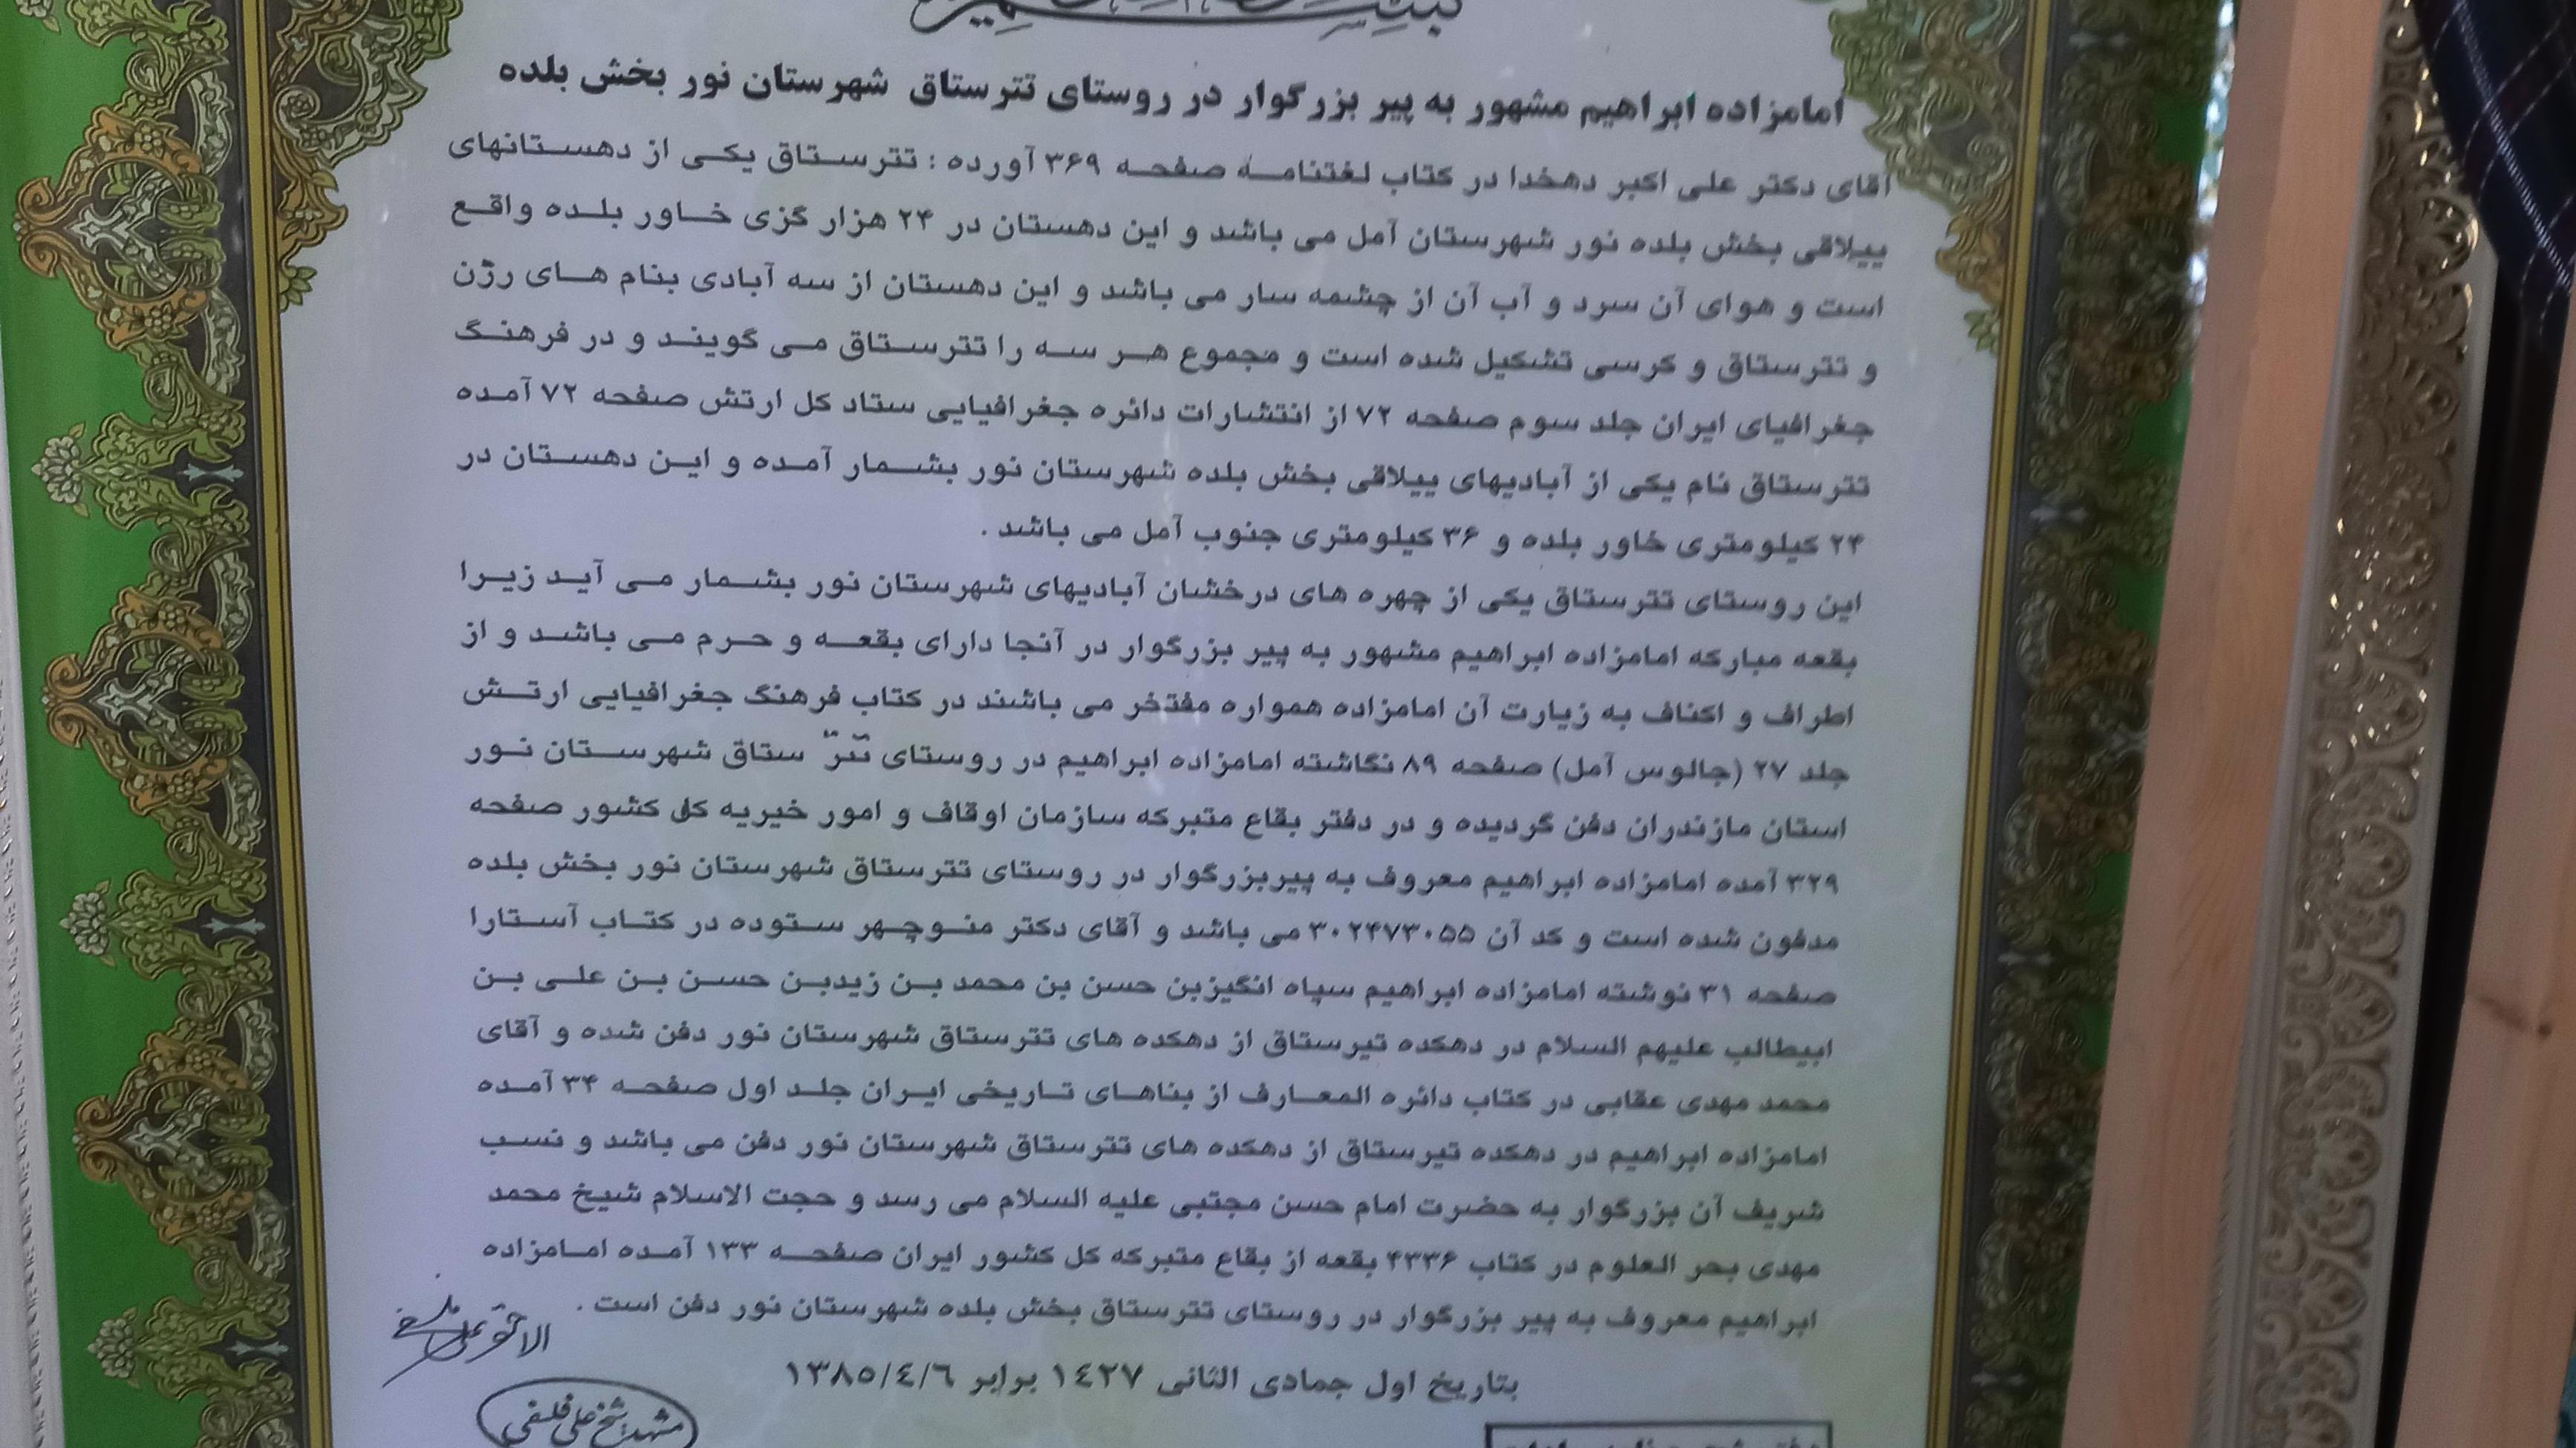 امامزاده ابراهیم مشهور به پیر بزرگوار در روستای تترستاق شهرستان نور بخش بلده
آقای دکتر علی اکبر دهخدا در کتاب لغتنامه صفحه ۳۶۹ آورده : تترستاق یکی از دهستانهای
ییلاقی بخش بلده نور شهرستان آمل می باشد و این دهستان در ۲۴ هزار گزی خاور بلده واقع
است و هوای آن سرد و آب آن از چشمه سار می باشد و این دهستان از سه آبادی بنام های رزن
و تترستاق و کرسی تشکیل شده است و مجموع هر سه را تترستاق می گویند و در فرهنگ
جغرافیای ایران جلد سوم صفحه ۷۲ از انتشارات دائره جغرافیایی ستاد کل ارتش صفحه ۷۲ آمده
تترستاق نام یکی از آبادیهای ییلاقی بخش بلده شهرستان نور بشمار آمده و این دهستان در
۲۴ کیلومتری خاور بلده و ۳۶ کیلومتری جنوب آمل می باشد .
این روستای تترستاق یکی از چهره های درخشان آبادیهای شهرستان نور بشمار می آید زیرا
بقعه مبارکه امامزاده ابراهیم مشهور به پیر بزرگوار در آنجا دارای بقعه و حرم می باشد و از
اطراف و اکناف به زیارت آن امامزاده همواره مفتخر می باشند در کتاب فرهنگ جغرافیایی ارتش
جلد ۲۷ (جالوس آمل) صفحه ۸۹ نگاشته امامزاده ابراهیم در روستای تتر ستاق شهرستان نور
استان مازندران دفن گردیده و در دفتر بقاع متبرکه سازمان اوقاف و امور خیریه کل کشور صفحه
۳۲۹ آمده امامزاده ابراهیم معروف به پیربزرگوار در روستای تترستاق شهرستان نور بخش بلده
مدفون شده است و کد آن ۳۰۲۴۷۳۰۵۵ می باشد و آقای دکتر منوچهر ستوده در کتاب آستارا
صفحه ۳۱ نوشته امامزاده ابراهیم سپاه انگیزبن حسن بن محمد بن زیدبن حسن بن علی بن
ابیطالب علیهم السلام در دهکده تیرستاق از دهکده های تترستاق شهرستان نور دفن شده و آقای
محمد مهدی عقابی در کتاب دائره المعارف از بناهای تاریخی ایران جلد اول صفحه ۳۴ آمده
امامزاده ابراهیم در دهکده تیرستاق از دهکده های تترستاق شهرستان نور دفن می باشد و نسب
شریف آن بزرگوار به حضرت امام حسن مجتبی علیه السلام می رسد و حجت الاسلام شیخ محمد
مهدی بحر العلوم در کتاب ۴۳۳۶ بقعه از بقاع متبرکه کل کشور ایران صفحه ۱۳۳ آمده امامزاده
ابراهیم معروف به پیر بزرگوار در روستای تترستاق بخش بلده شهرستان نور دفن است .
بتاریخ اول جمادی الثانی ١٤٢٧ برابر ١٣٨٥/٤/٦
مشهد شیخ علی فلسفی